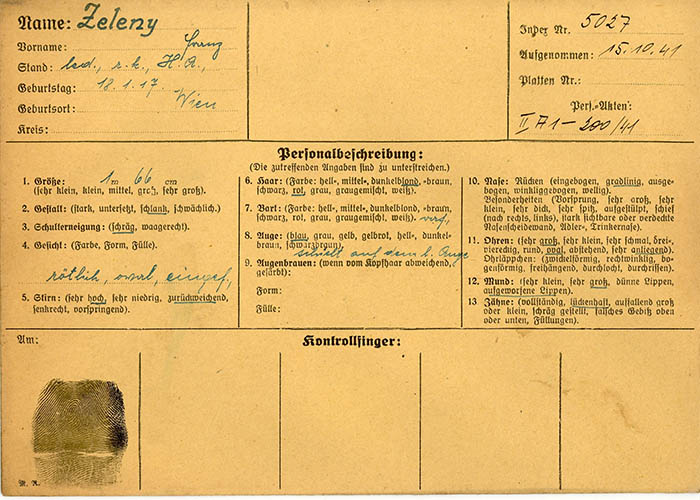 Name: Zeleny
Vorname: Franz
Stand: led., r.k., H.A.,
Geburtstag: 18.1.17.
Geburtsort: Wien
Kreis:
Index Nr. 5027
Aufgenommen: 15.10.41
Platten Nr.:
Pers.-Akten:
II A1-200/41
Personalbeschreibung:
(Die zutreffenden Angaben sind zu unterstreichen.)
1. Größe: 1 m 66 cm
(sehr klein, klein, mittel, groß, sehr groß).
2. Gestalt: (stark, untersetzt, schlank, schwächlich.)
3. Schulterneigung: (schräg, waagerecht.)
4. Gesicht: (Farbe, Form, Fülle).
rötlich, oval, eingef.,
5. Stirn: (sehr hoch, sehr niedrig, zurückweichend,
senkrecht, vorspringend).
6. Haar: (Farbe: hell-, mittel-, dunkelblond, -braun,
schwarz, rot, grau, graugemischt, weiß).
7. Bart: (Farbe: hell-, mittel-, dunkelblond, -braun,
schwarz, rot, grau, graugemischt, weiß).
8. Auge: (blau, grau, gelb, gelbrot, hell-, dunkel-
braun, schwarzbraun).
schielt auf dem l. Auge
9. Augenbrauen: (wenn vom Kopfhaar abweichend,
gefärbt):
Form:
Fülle:
10. Nase: Rücken (eingebogen, gradlinig, ausge-
bogen, winkliggebogen, wellig).
Besonderheiten (Vorsprung, sehr groß, sehr
klein, sehr dick, sehr spitz, aufgestülpt, schief
(nach rechts, links), stark sichtbare oder verdeckte
Nasenscheidewand, Adler-, Trinkernase).
11. Ohren: (sehr groß, sehr klein, sehr schmal, drei-
viereckig, rund, oval, abstehend, sehr anliegend).
Ohrläppchen: (zwickelförmig, rechtwinklig, bo-
genförmig, freihängend, durchlocht, durchrissen).
12. Mund: (sehr klein, sehr groß, dünne Lippen,
aufgeworfene Lippen).
13 Zähne: (vollständig, lückenhaft, auffallend groß
oder klein, schräg gestellt, falsches Gebiß oben
oder unten, Füllungen).
Am:
Kontrollfinger:
M. R.